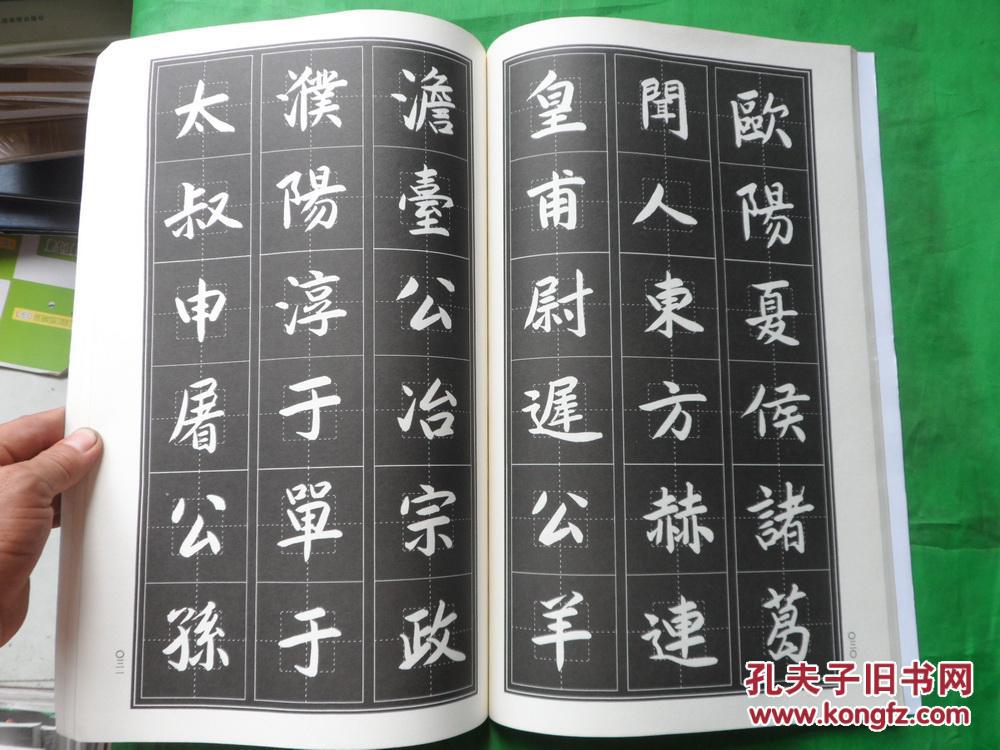 歐陽夏侯諸葛
聞人東方赫連
皇甫尉遲公羊
澹臺公冶宗政
濮陽淳于單于
太叔申屠公孫
〇三〇
〇三一
孔夫子旧书网
www.kongfz.com